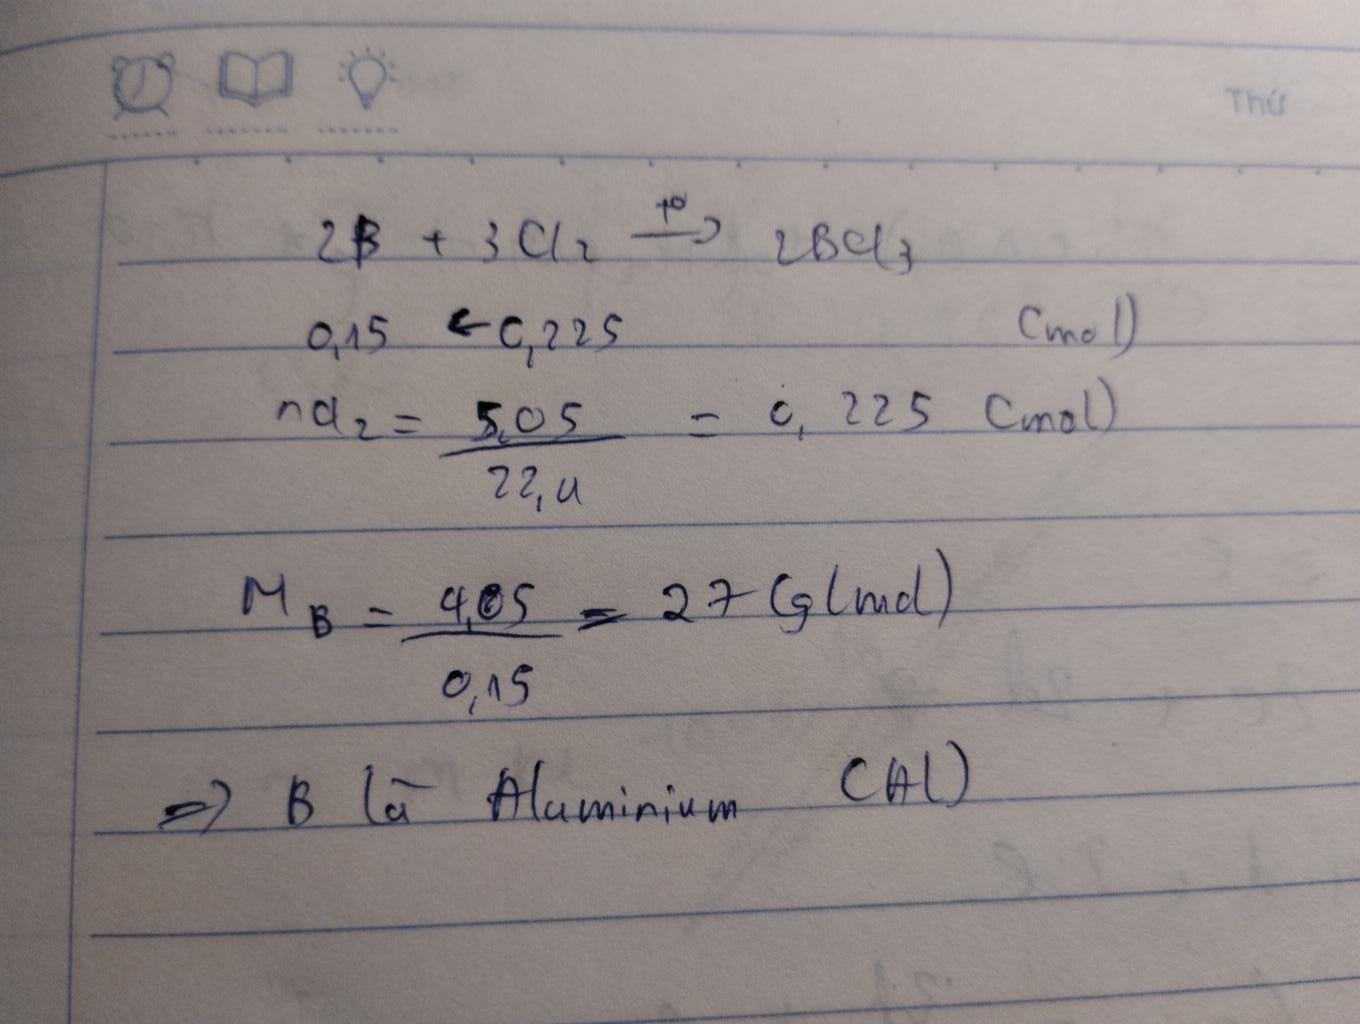 Thứ
2B + 3Cl₂ —t°→ 2BCl₃
0,15 ← 0,225 (mol)
nCl₂ = 5,05/22,4 = 0,225 (mol)
M_B = 4,05/0,15 = 27 (g/mol)
=> B là Aluminium (Al)